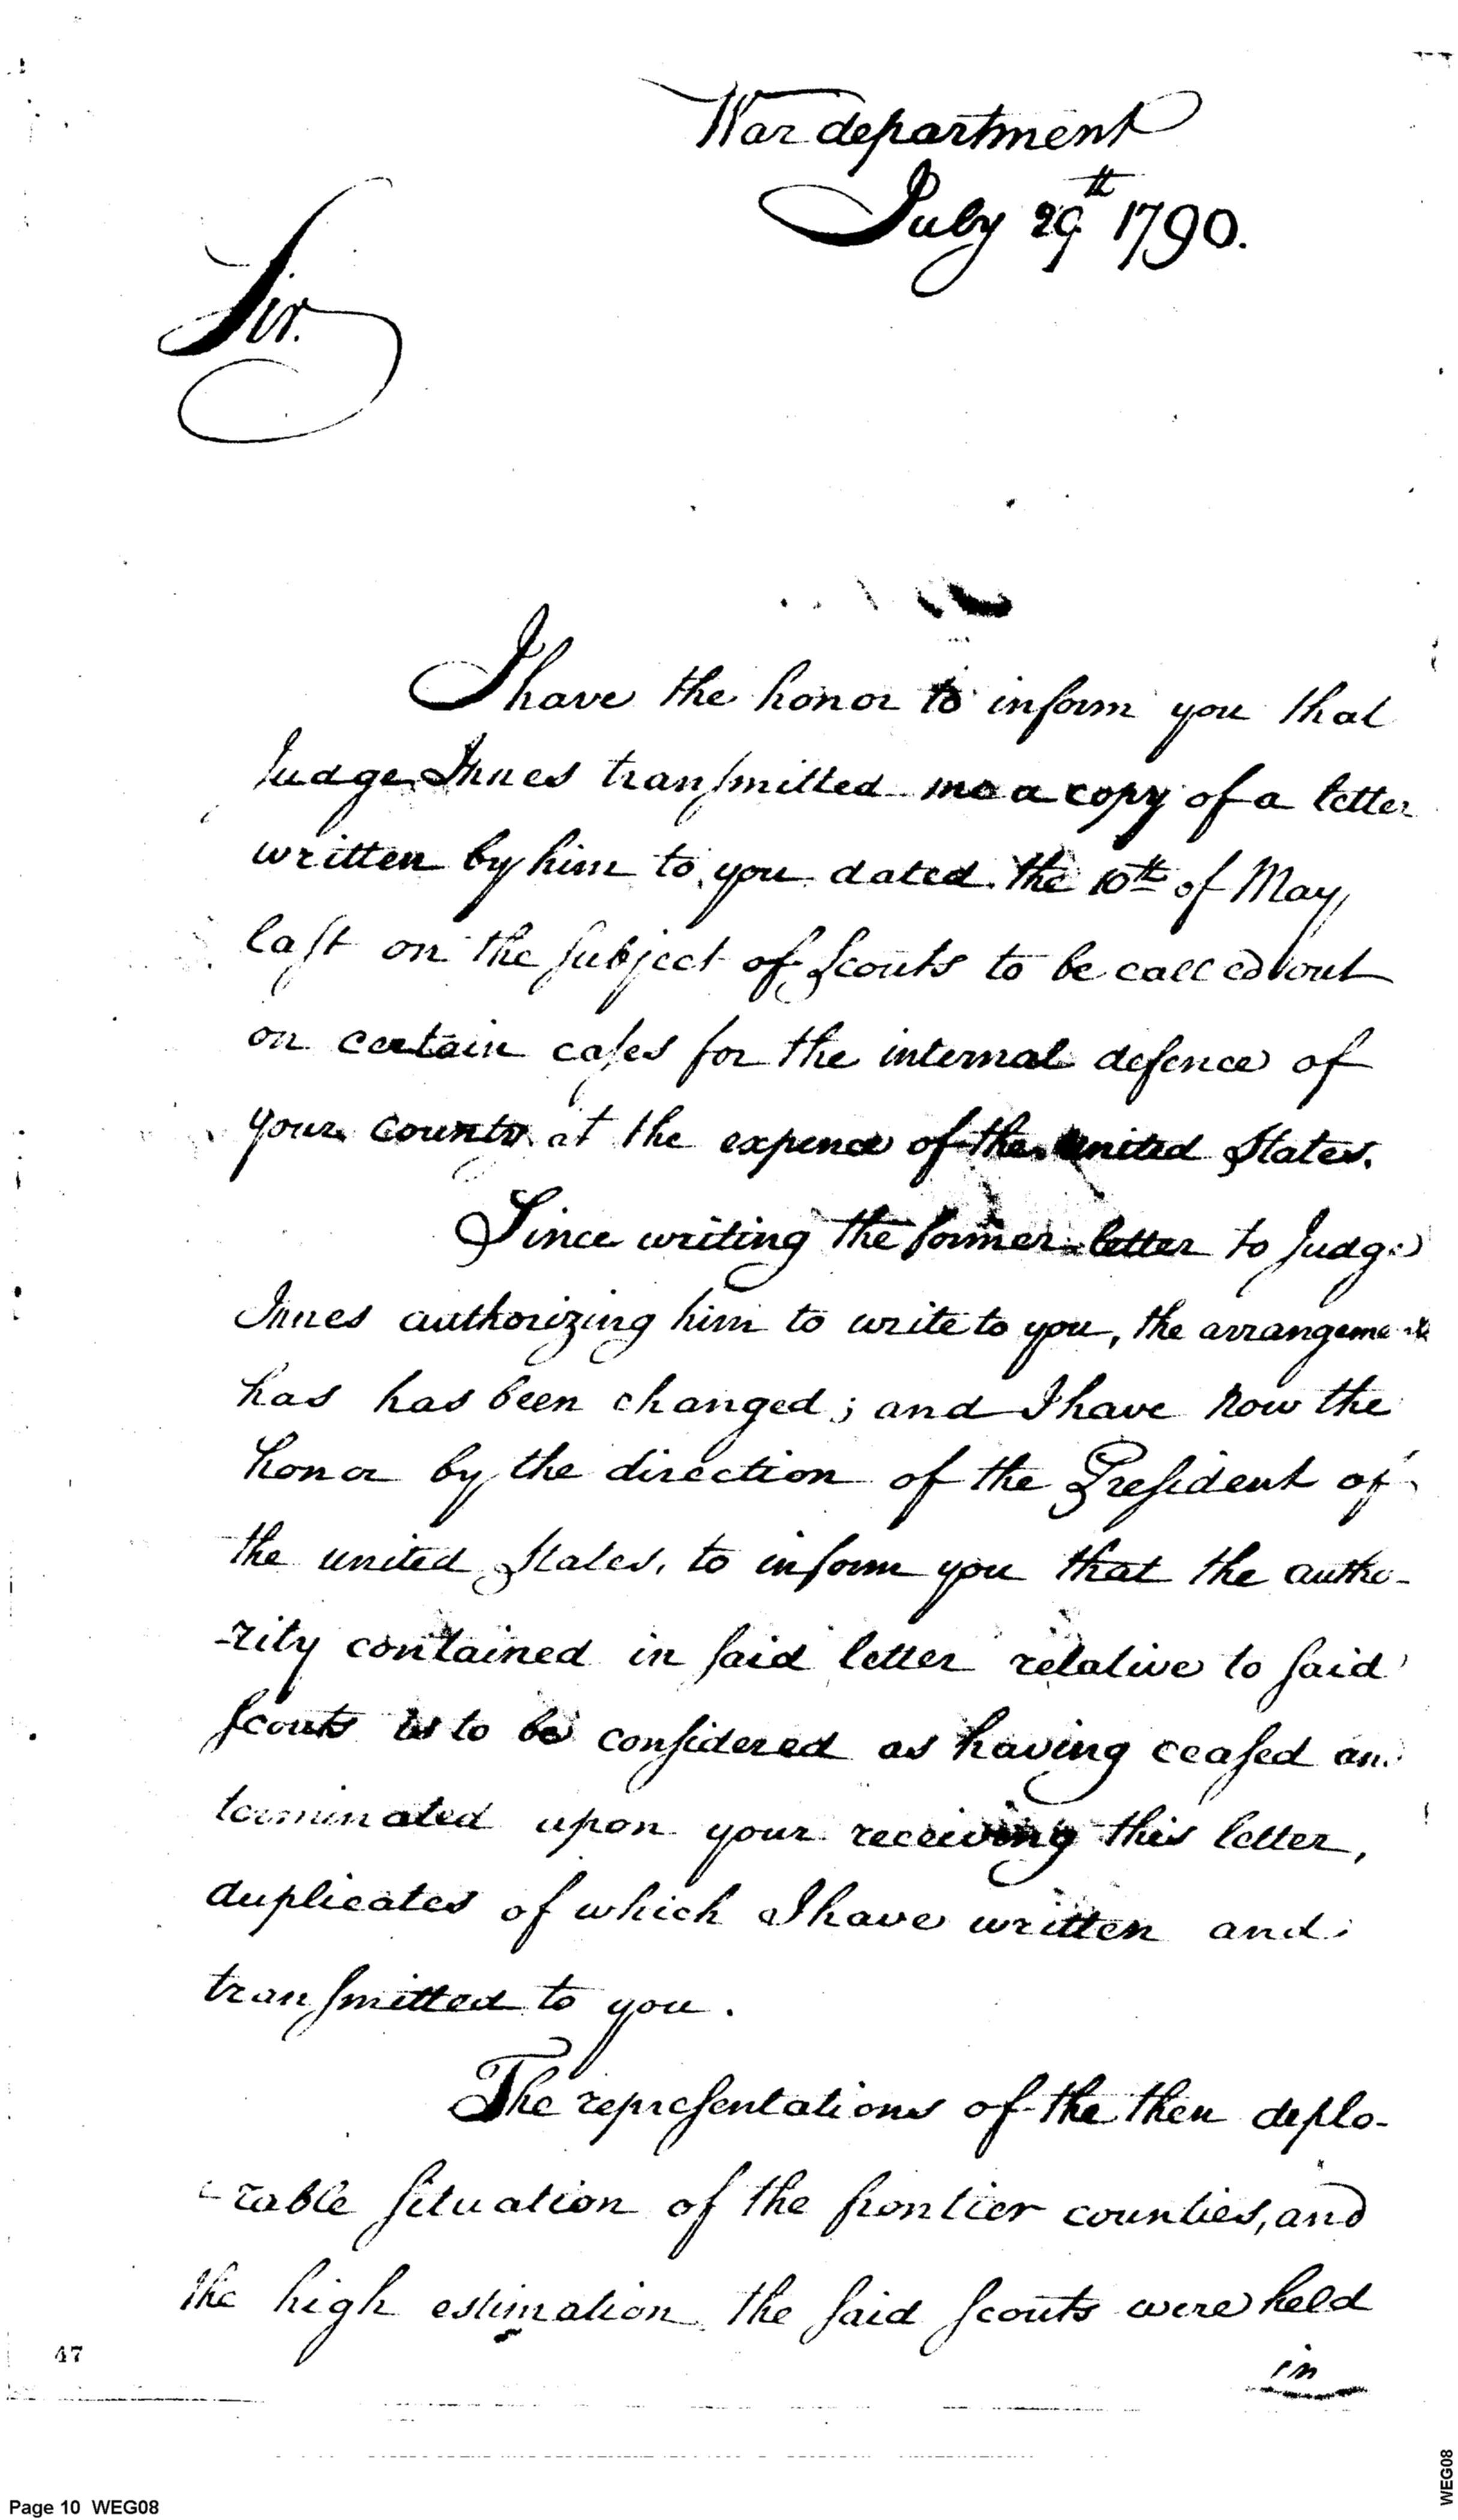 War department
July 29th 1790.
Sir.
I have the honor to inform you that
Judge Innes transmitted me a copy of a letter
written by him to you dated the 10th of May
last on the subject of scouts to be called out
on certain cases for the internal defence of
your county at the expence of the united States.
Since writing the former letter to Judge
Innes authorizing him to write to you, the arrangement
has has been changed; and I have now the
honor by the direction of the President of
the united States, to inform you that the autho-
-rity contained in said letter relative to said
scouts is to be considered as having ceased and
terminated upon your receiving this letter,
duplicates of which I have written and
transmitted to you.
The representations of the then deplo-
-rable situation of the frontier counties, and
the high estimation the said scouts were held
in
47
Page 10 WEG08
WEG08